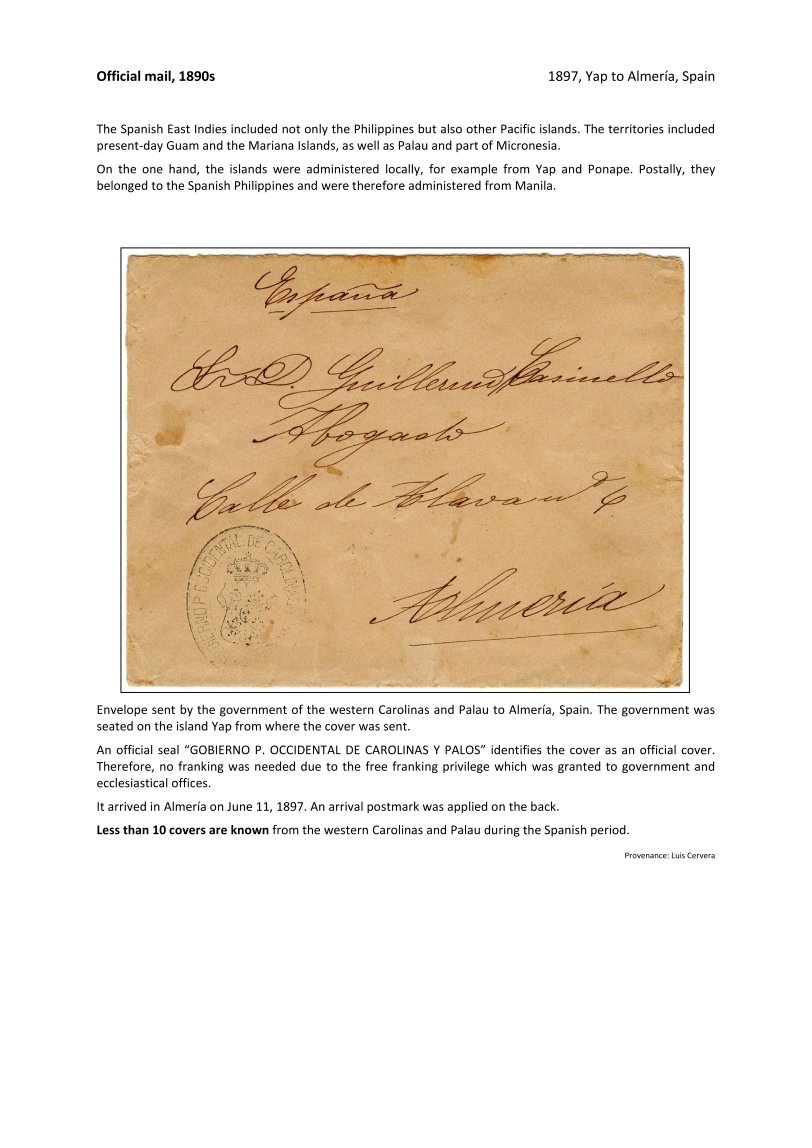 Official mail, 1890s
1897, Yap to Almería, Spain
The Spanish East Indies included not only the Philippines but also other Pacific islands. The territories included
present-day Guam and the Mariana Islands, as well as Palau and part of Micronesia.
On the one hand, the islands were administered locally, for example from Yap and Ponape. Postally, they
belonged to the Spanish Philippines and were therefore administered from Manila.
España
Sr. D. Guillermo Casinello
Abogado
Calle de Alava nº 6
GOBIERNO P. OCCIDENTAL DE CAROLINAS
Almería
Envelope sent by the government of the western Carolinas and Palau to Almería, Spain. The government was
seated on the island Yap from where the cover was sent.
An official seal “GOBIERNO P. OCCIDENTAL DE CAROLINAS Y PALOS” identifies the cover as an official cover.
Therefore, no franking was needed due to the free franking privilege which was granted to government and
ecclesiastical offices.
It arrived in Almería on June 11, 1897. An arrival postmark was applied on the back.
Less than 10 covers are known from the western Carolinas and Palau during the Spanish period.
Provenance: Luis Cervera